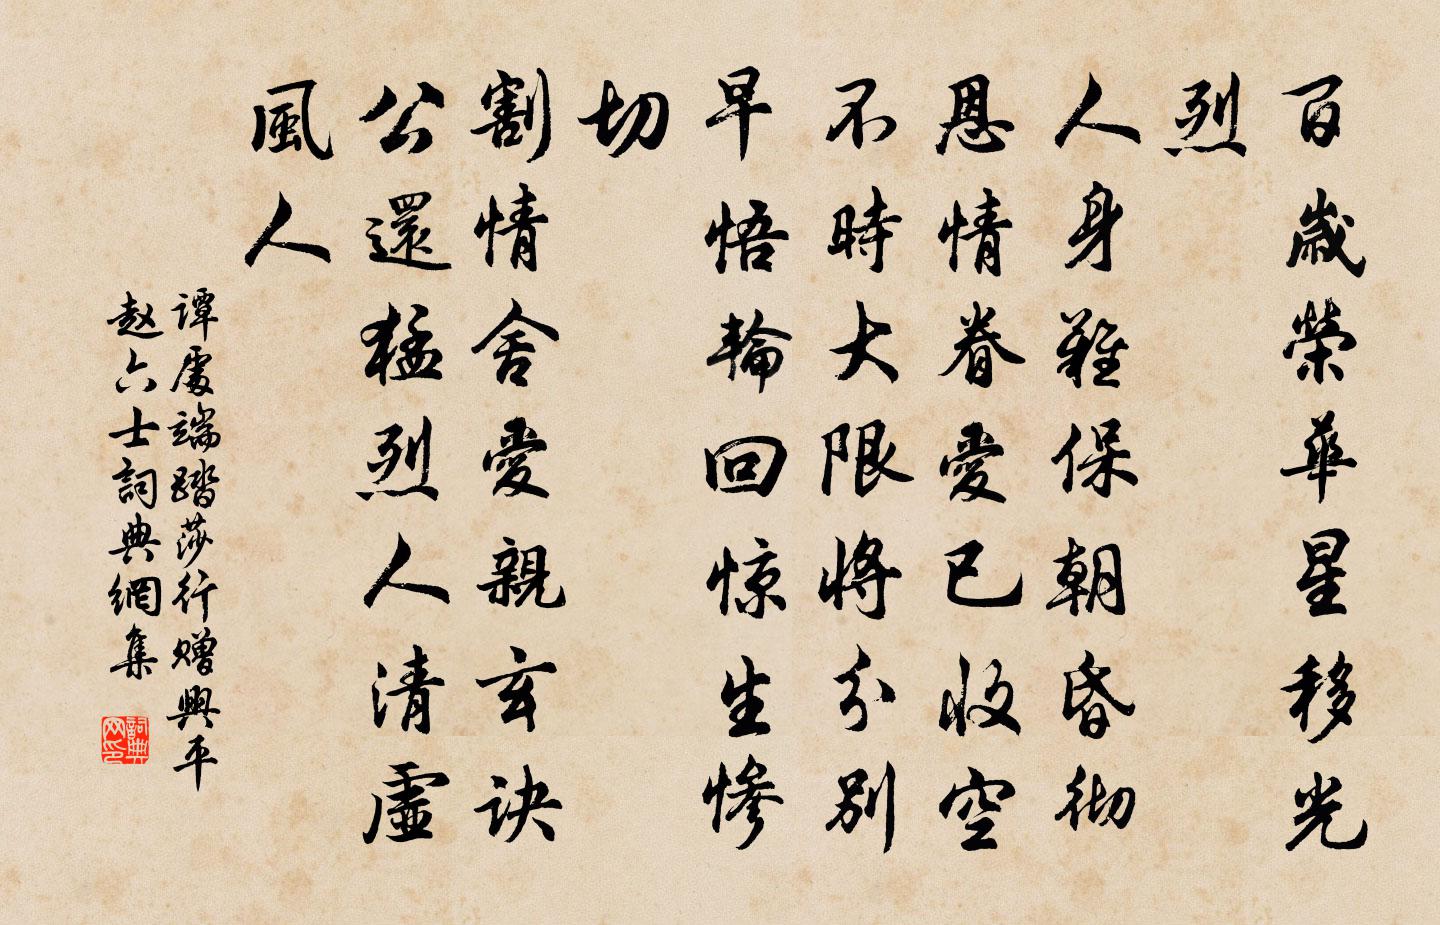 百歲榮華星移光
烈
人身難保朝昏彻
恩情眷愛已收空
不時大限將分別
早悟輪回惊生慘
切
割情舍愛親玄诀
公還猛烈人清虛
風人
谭處端踏莎行赠興平
赵六士詞典網集
詞典网印